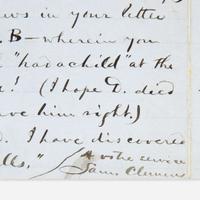 ws in your letter
. B — wherein you
"had a child" at the
e! (I hope D. died
ve him right.)
d. I have discovered
lls," A votre service
Sam. Clemens